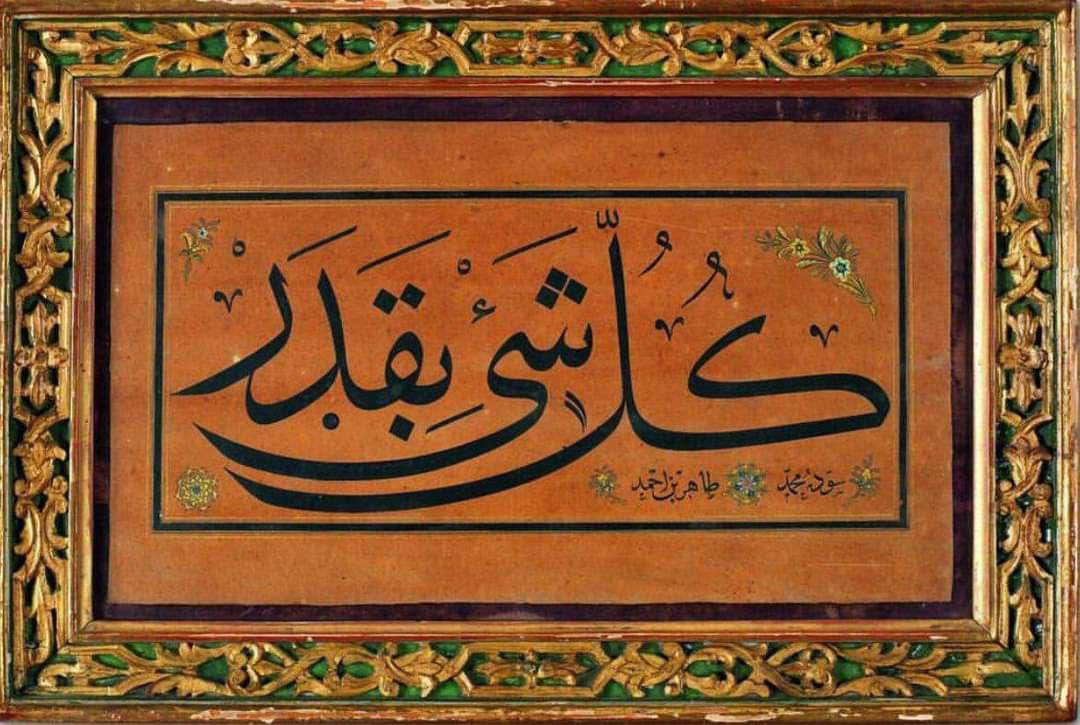 كُلُّ شَیْءٍ بِقَدَرْ
سوّده محمّد طاهر بن احمد